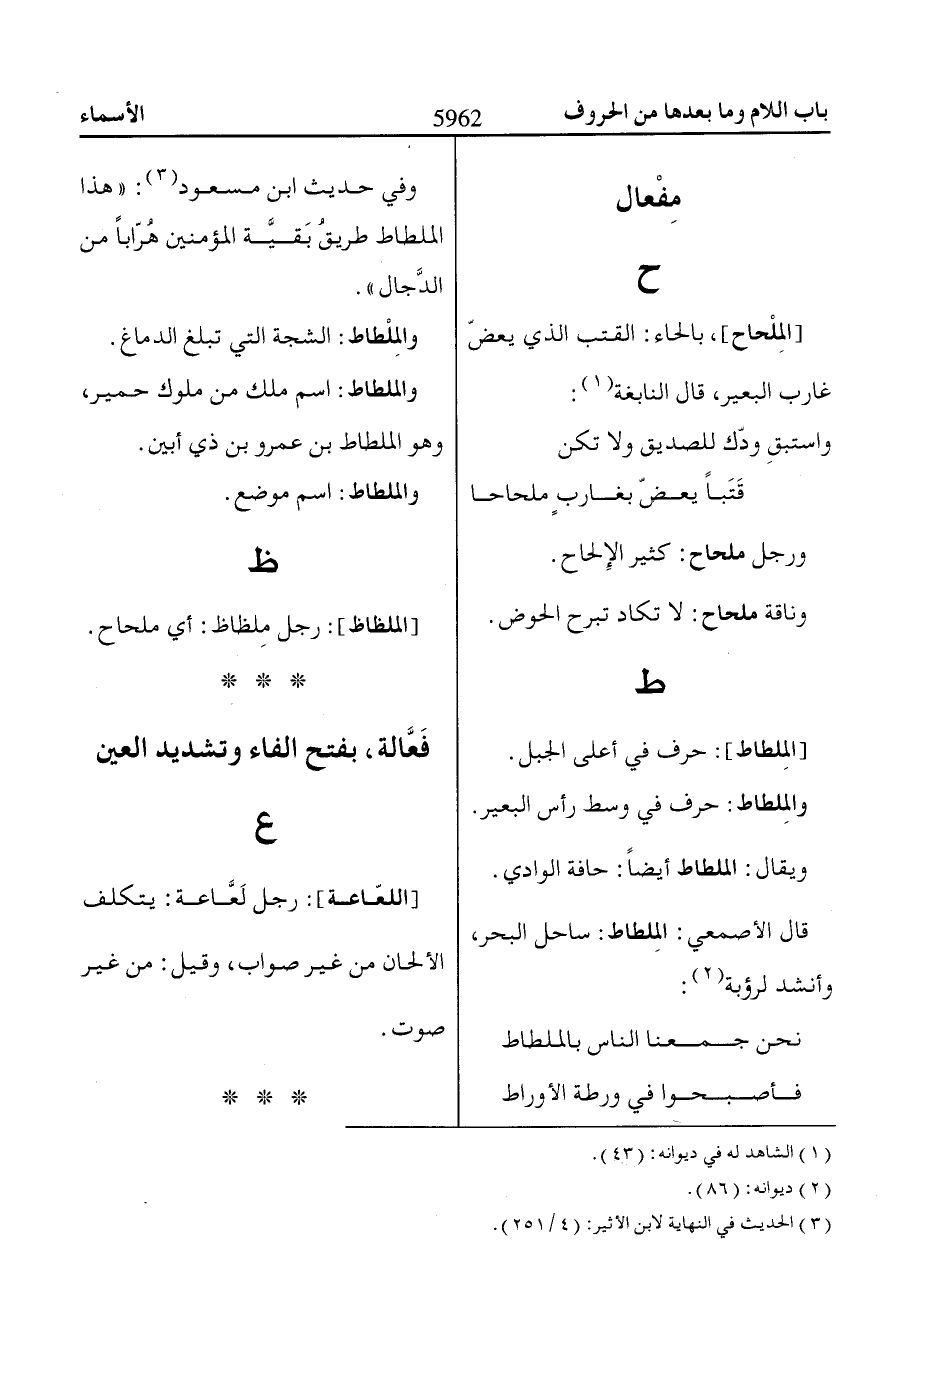 باب اللام وما بعدها من الحروف
5962
الأسماء
مِفْعال
ح
[المِلْحاح]، بالحاء: القتب الذي يعضّ
غارب البعير، قال النابغة(١):
واستبقِ ودّك للصديق ولا تكن
قَتَباً يعضّ بغاربٍ ملحاحا
ورجل ملحاح: كثير الإلحاح.
وناقة ملحاح: لا تكاد تبرح الحوض.
ط
[المِلطاط]: حرف في أعلى الجبل.
والمِلطاط: حرف في وسط رأس البعير.
ويقال: الملطاط أيضاً: حافة الوادي.
قال الأصمعي: المِلطاط: ساحل البحر،
وأنشد لرؤبة(٢):
نحن جمعنا الناس بالملطاط
فأصبحوا في ورطة الأوراط
وفي حديث ابن مسعود(٣): «هذا
الملطاط طريقُ بَقيَّة المؤمنين هُرّاباً من
الدَّجال».
والمِلْطاط: الشجة التي تبلغ الدماغ.
والملطاط: اسم ملك من ملوك حمير،
وهو الملطاط بن عمرو بن ذي أبين.
والملطاط: اسم موضع.
ظ
[الملظاظ]: رجل مِلظاظ: أي ملحاح.
* * *
فَعَّالة، بفتح الفاء وتشديد العين
ع
[اللعّاعة]: رجل لَعَّاعة: يتكلف
الألحان من غير صواب، وقيل: من غير
صوت.
* * *
(١) الشاهد له في ديوانه: (٤٣).
(٢) ديوانه: (٨٦).
(٣) الحديث في النهاية لابن الأثير: (٤/ ٢٥١).